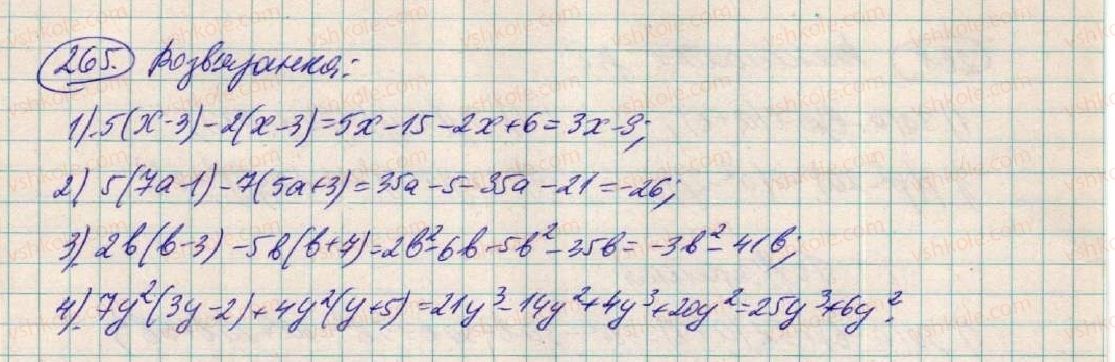 265. Розв'язання:
1) 5(x-3)-2(x-3)=5x-15-2x+6=3x-9;
2) 5(7a-1)-7(5a+3)=35a-5-35a-21=-26;
3) 2b(b-3)-5b(b+7)=2b²-6b-5b²-35b=-3b²-41b;
4) 7y²(3y-2)+4y²(y+5)=21y³-14y²+4y³+20y²=25y³+6y².